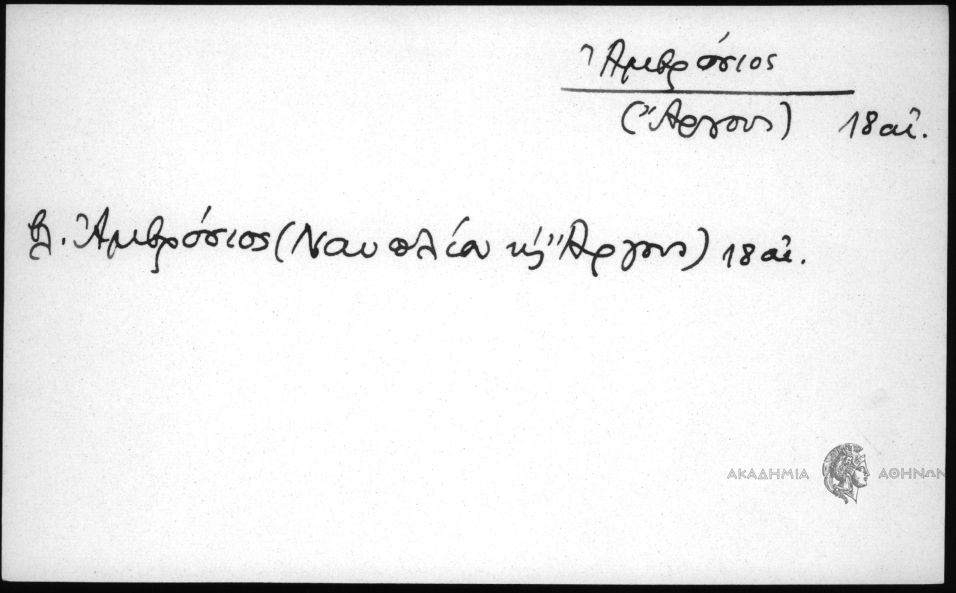 Ἀμβρόσιος
(Ἄργους) 18 αἰ.
βλ. Ἀμβρόσιος (Ναυπλίου κ Ἄργους) 18 αἰ.
ΑΚΑΔΗΜΙΑ ΑΘΗΝΩΝ